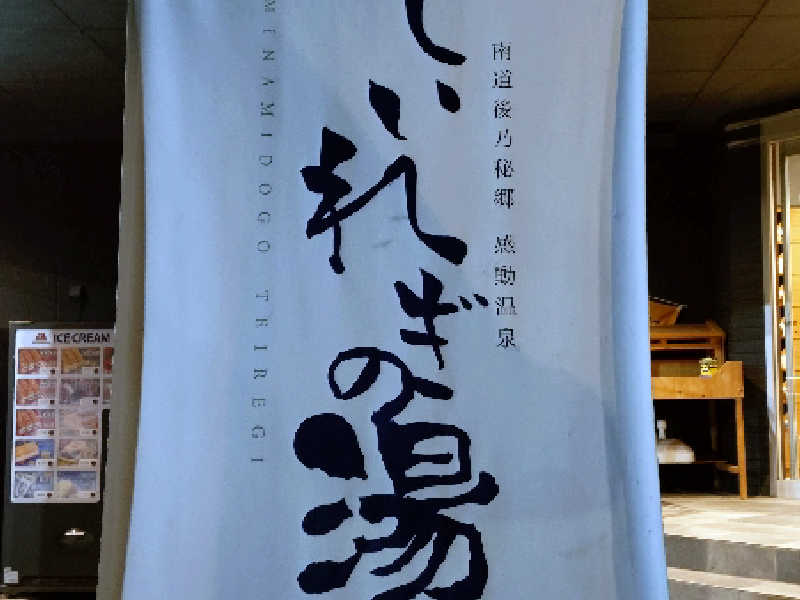 南道後乃秘郷 感動温泉
ていれぎの湯
MINAMIDOGO TEIREGI
ICE CREAM